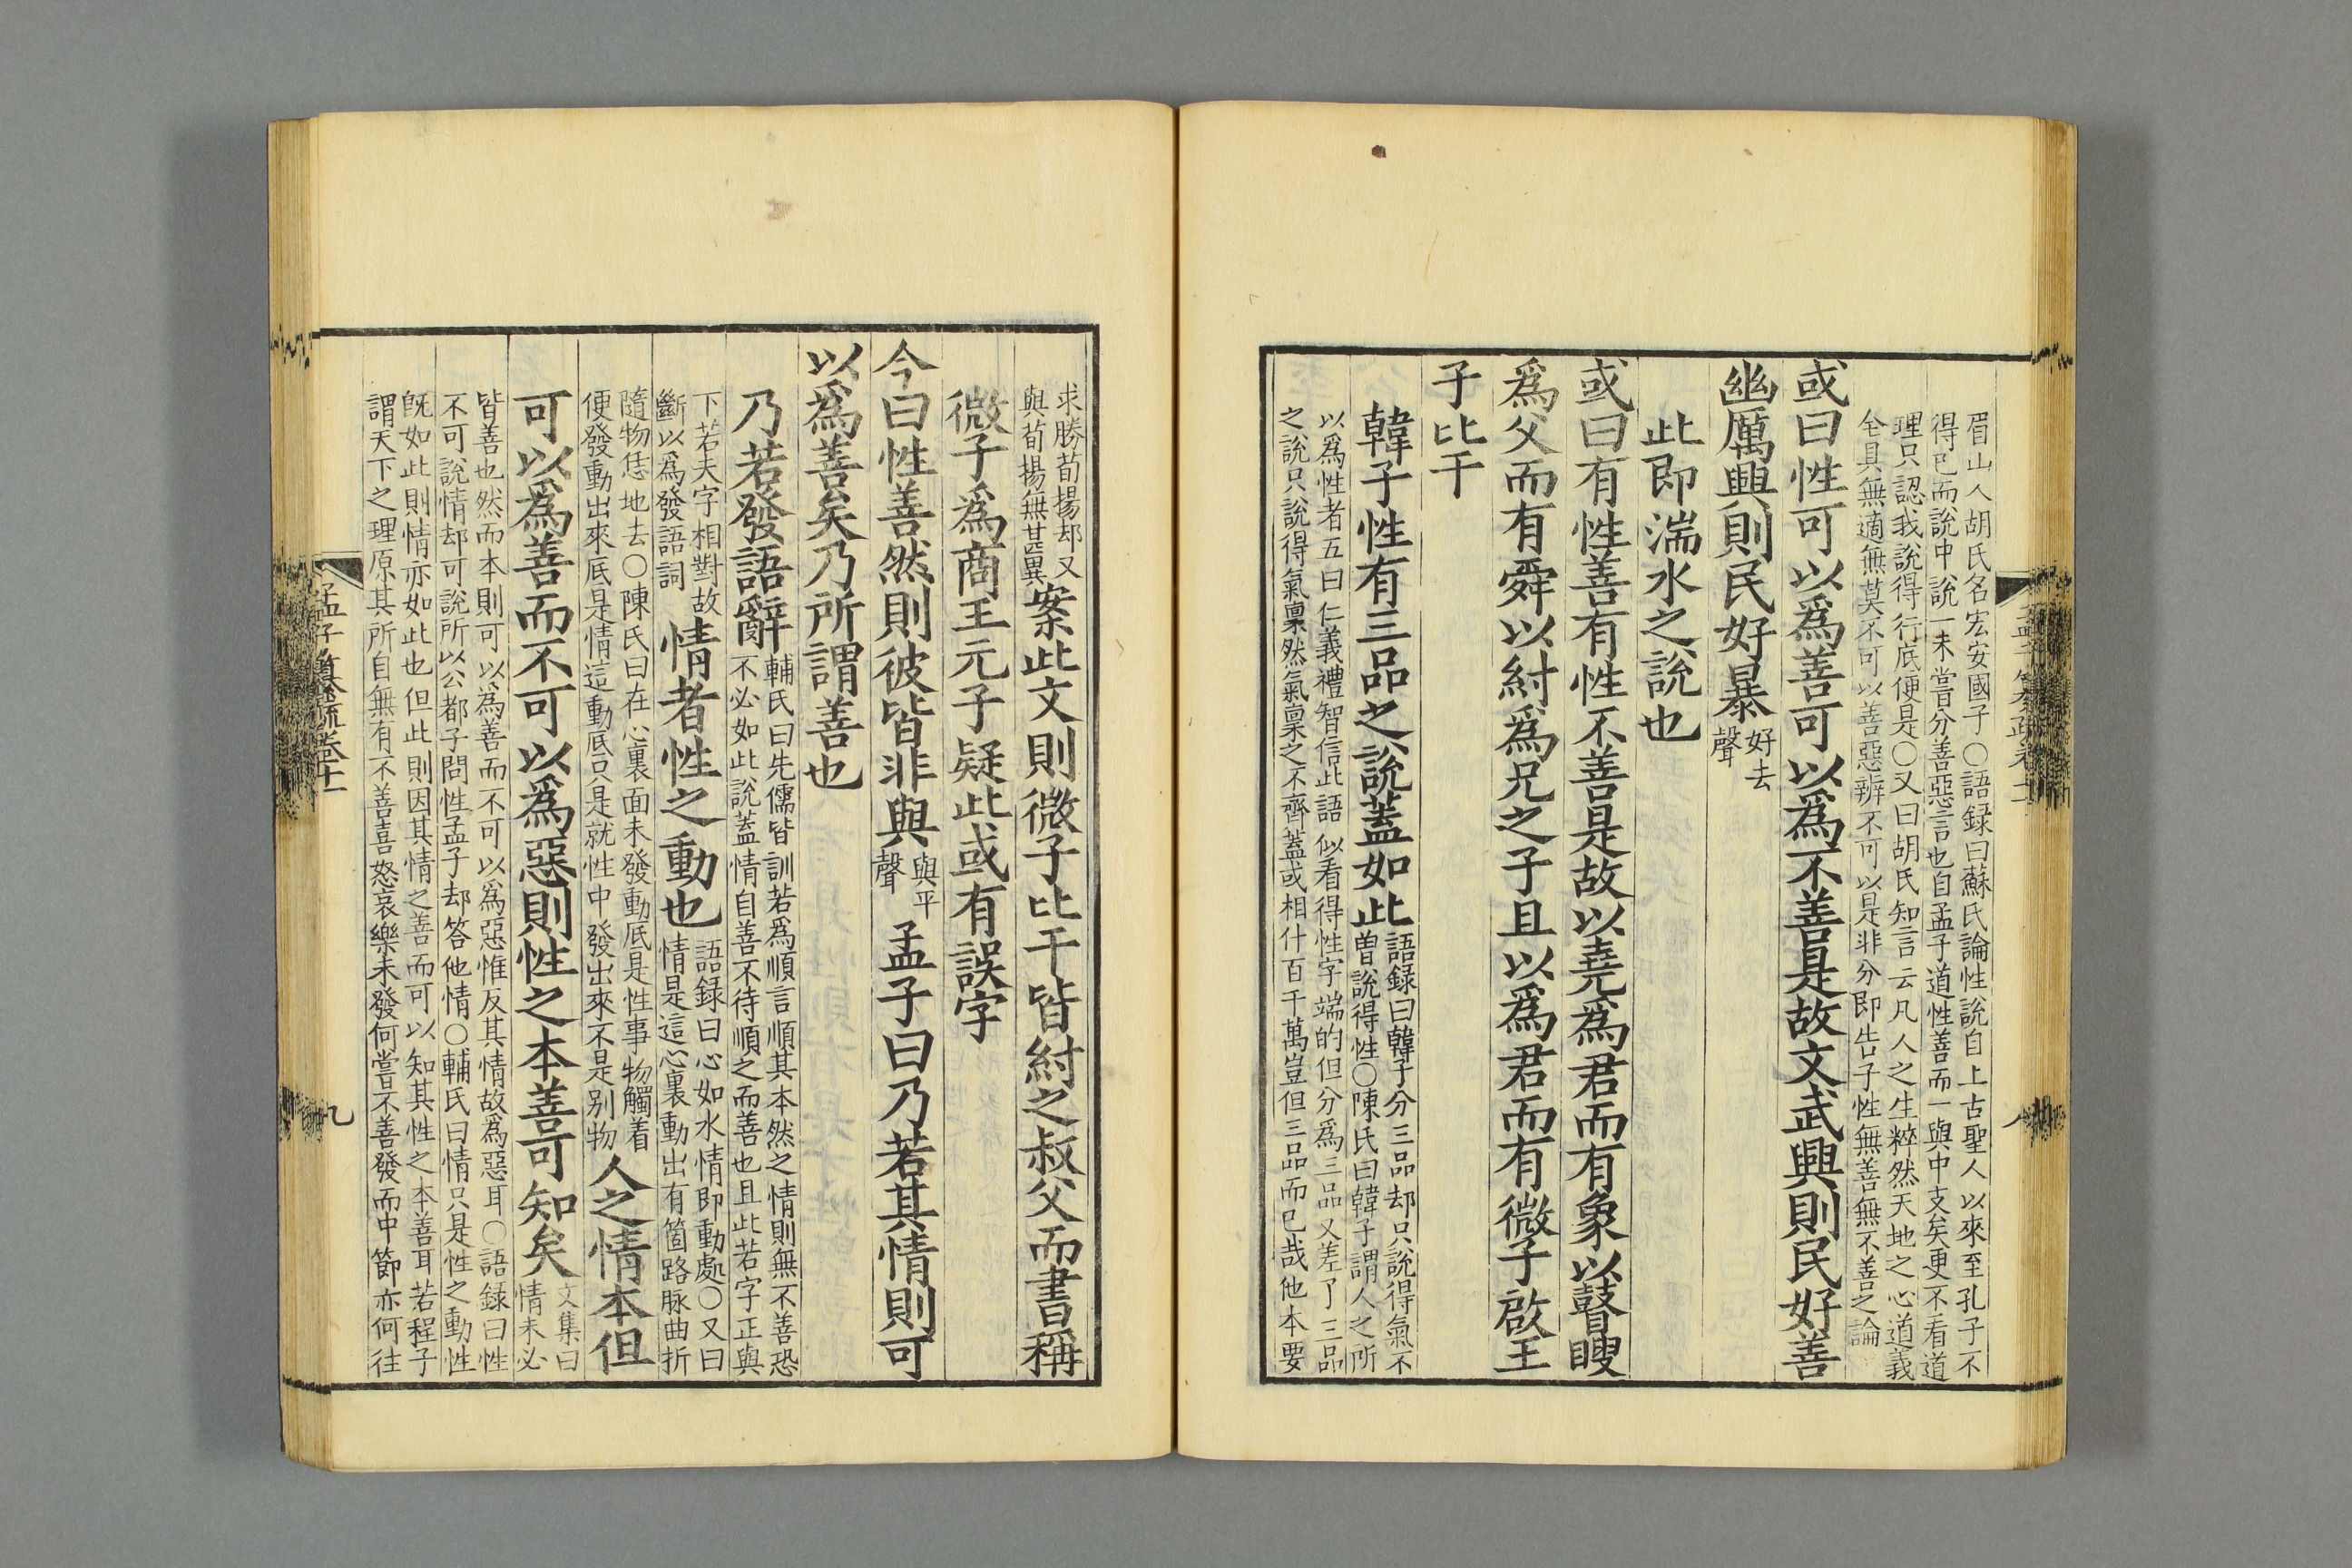 眉山人胡氏名宏安國子〇語録曰蘇氏論性說自上古聖人以來至孔子不
得已而說中說一未嘗分善惡言也自孟子道性善而一與中支矣更不看道
理只認我說得行底便是〇又曰胡氏知言云凡人之生粹然天地之心道義
全具無適無莫不可以善惡辨不可以是非分即告子性無善無不善之論
或曰性可以爲善可以爲不善是故文武興則民好善
幽厲興則民好暴好去聲
此即湍水之說也
或曰有性善有性不善是故以堯爲君而有象以瞽瞍
爲父而有舜以紂爲兄之子且以爲君而有微子啟王
子比干
韓子性有三品之說蓋如此語録曰韓子分三品却只說得氣不曽說得性〇陳氏曰韓子謂人之所
以爲性者五曰仁義禮智信此語似看得性字端的但分爲三品又差了三品
之說只說得氣稟然氣稟之不齊蓋或相什百千萬豈但三品而已哉他本要
求勝荀揚却又與荀揚無甚異案此文則微子比干皆紂之叔父而書稱
微子爲商王元子疑此或有誤字
今曰性善然則彼皆非與與平聲孟子曰乃若其情則可
以爲善矣乃所謂善也
乃若發語辭輔氏曰先儒皆訓若爲順言順其本然之情則無不善恐不必如此說蓋情自善不待順之而善也且此若字正與
下若夫字相對故斷以爲發語詞情者性之動也語録曰心如水情即動處〇又曰情是這心裏動出有箇路脉曲折
隨物恁地去〇陳氏曰在心裏面未發動底是性事物觸着便發動出來底是情這動底只是就性中發出來不是别物人之情本但
可以爲善而不可以爲惡則性之本善可知矣文集曰情未必
皆善也然而本則可以爲善而不可以爲惡惟反其情故爲惡耳〇語録曰性
不可說情却可說所以公都子問性孟子却答他情〇輔氏曰情只是性之動性
既如此則情亦如此也但此則因其情之善而可以知其性之本善耳若程子
謂天下之理原其所自無有不善喜怒哀樂未發何嘗不善發而中節亦何往
孟子纂疏卷十一
九